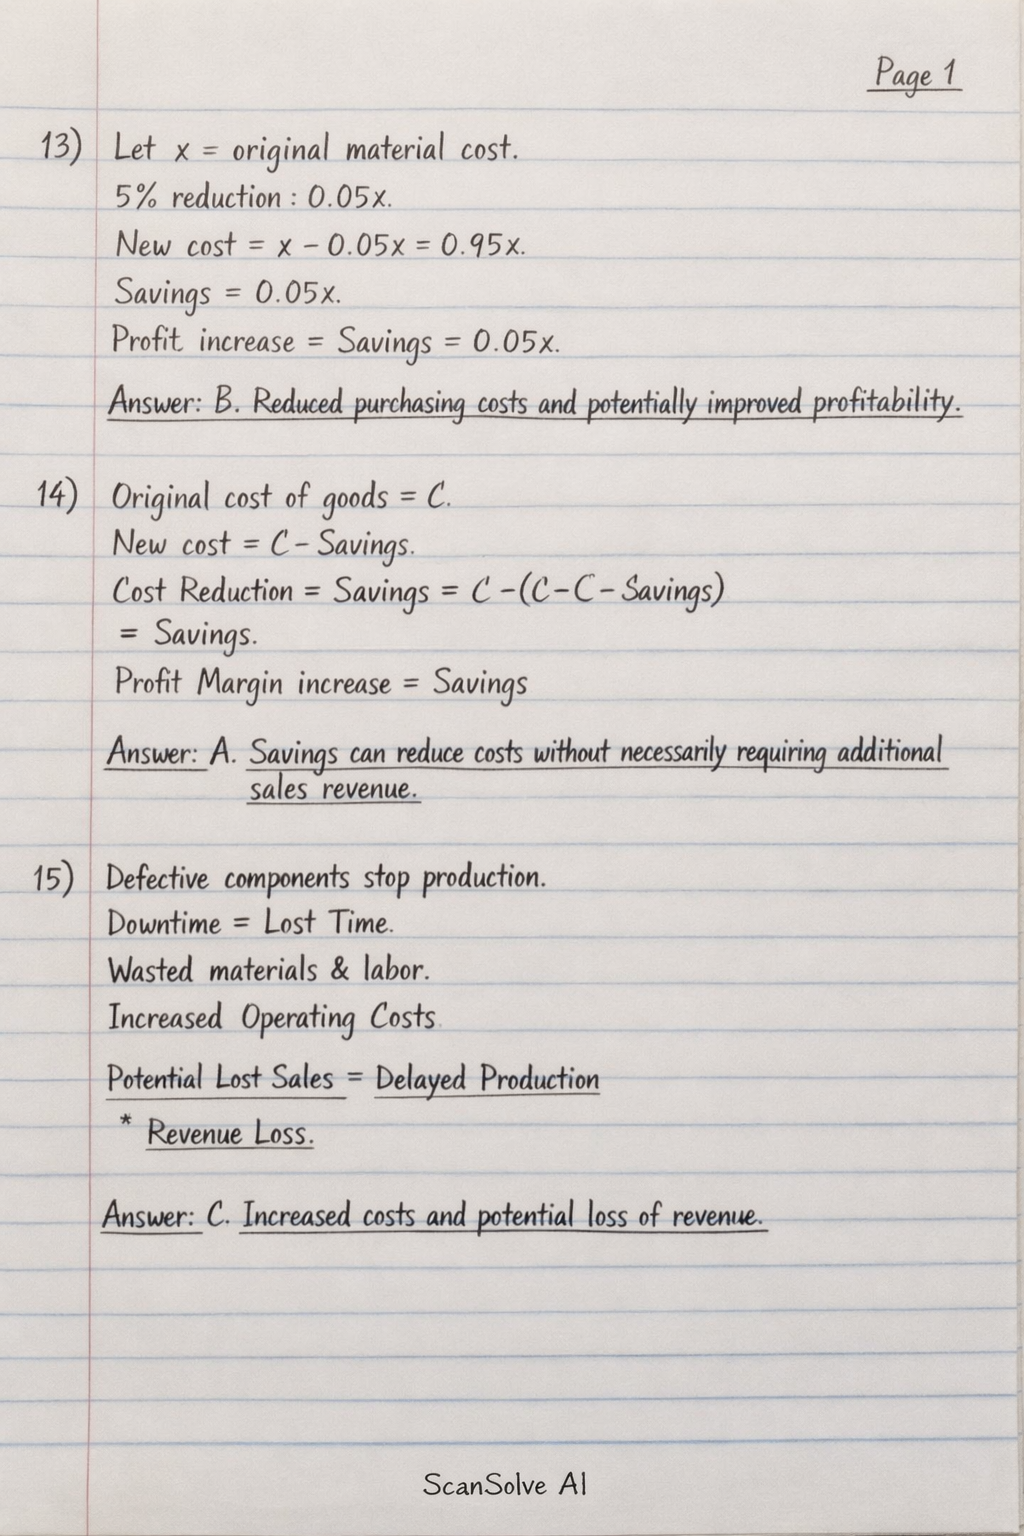 Page 1
13) Let x = original material cost.
5% reduction : 0.05x.
New cost = x - 0.05x = 0.95x.
Savings = 0.05x.
Profit increase = Savings = 0.05x.
Answer: B. Reduced purchasing costs and potentially improved profitability.
14) Original cost of goods = C.
New cost = C - Savings.
Cost Reduction = Savings = C -(C - C - Savings)
= Savings.
Profit Margin increase = Savings
Answer: A. Savings can reduce costs without necessarily requiring additional
sales revenue.
15) Defective components stop production.
Downtime = Lost Time.
Wasted materials & labor.
Increased Operating Costs.
Potential Lost Sales = Delayed Production
* Revenue Loss.
Answer: C. Increased costs and potential loss of revenue.
ScanSolve AI